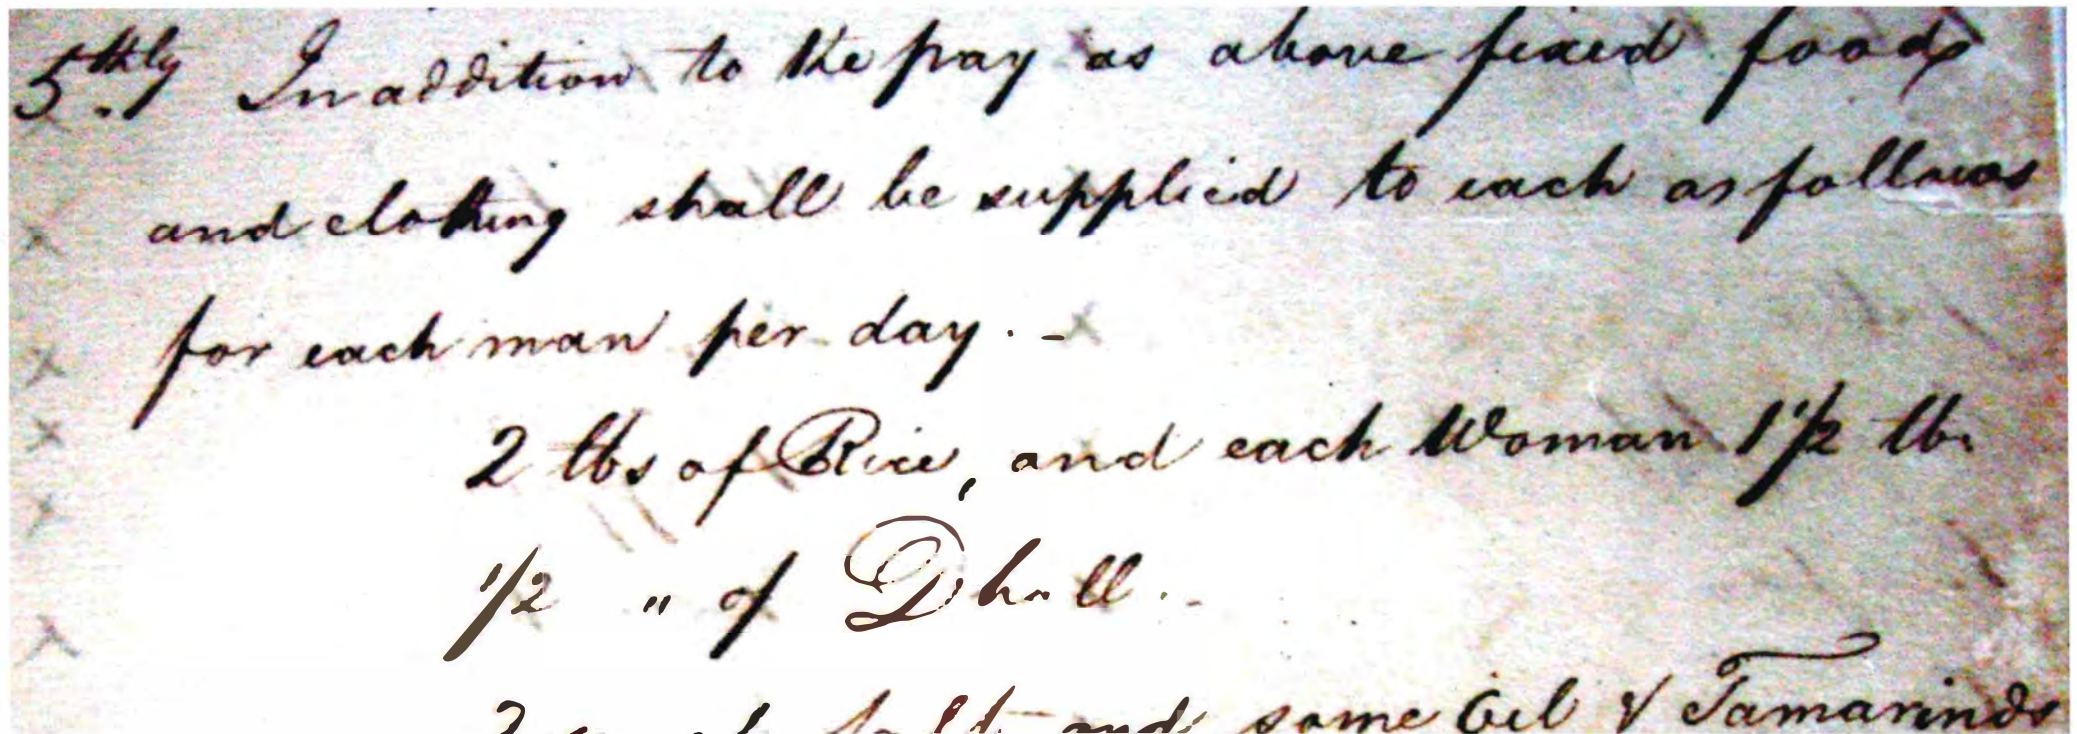 5thly In addition to the pay as above fixed food
and clothing shall be supplied to each as follows
for each man per day. -
2 lbs of Rice, and each Woman 1 1/2 lb.
1/2 " of Dhall.
2 Salt and some Oil & Tamarinds